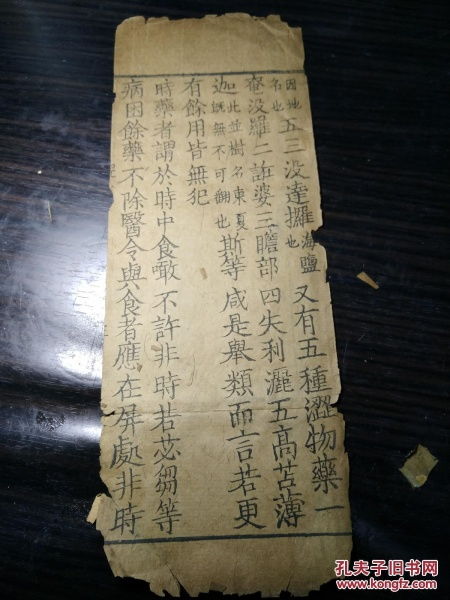 因地名也五三没達攞海鹽也又有五種澀物藥一
奄没羅二婆三瞻部四失利灑五高苫薄
迦此並樹名東夏既無不可翻也斯等咸是舉類而言若更
有餘用皆無犯
時藥者謂於時中食噉不許非時若苾芻等
病困餘藥不除醫令與食者應在屏處非時
孔夫子旧书网
www.kongfz.com